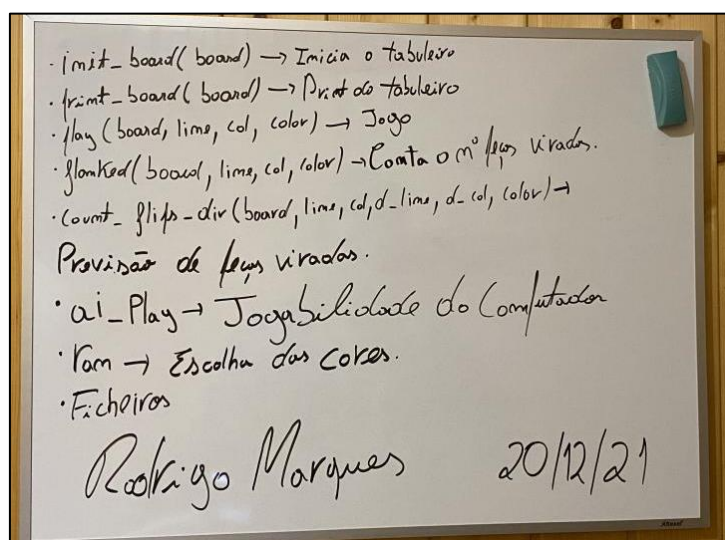 · init_board(board) → Inicia o tabuleiro
· print_board(board) → Print do tabuleiro
· play(board, line, col, color) → Jogo
· flanked(board, line, col, color) → Conta o nº peças viradas.
· count_flips_dir(board, line, col, d_line, d_col, color) →
Previsão de peças viradas.
· ai_Play → Jogabilidade do Computador
· ran → Escolha das cores.
· Ficheiros
Rodrigo Marques 20/12/21